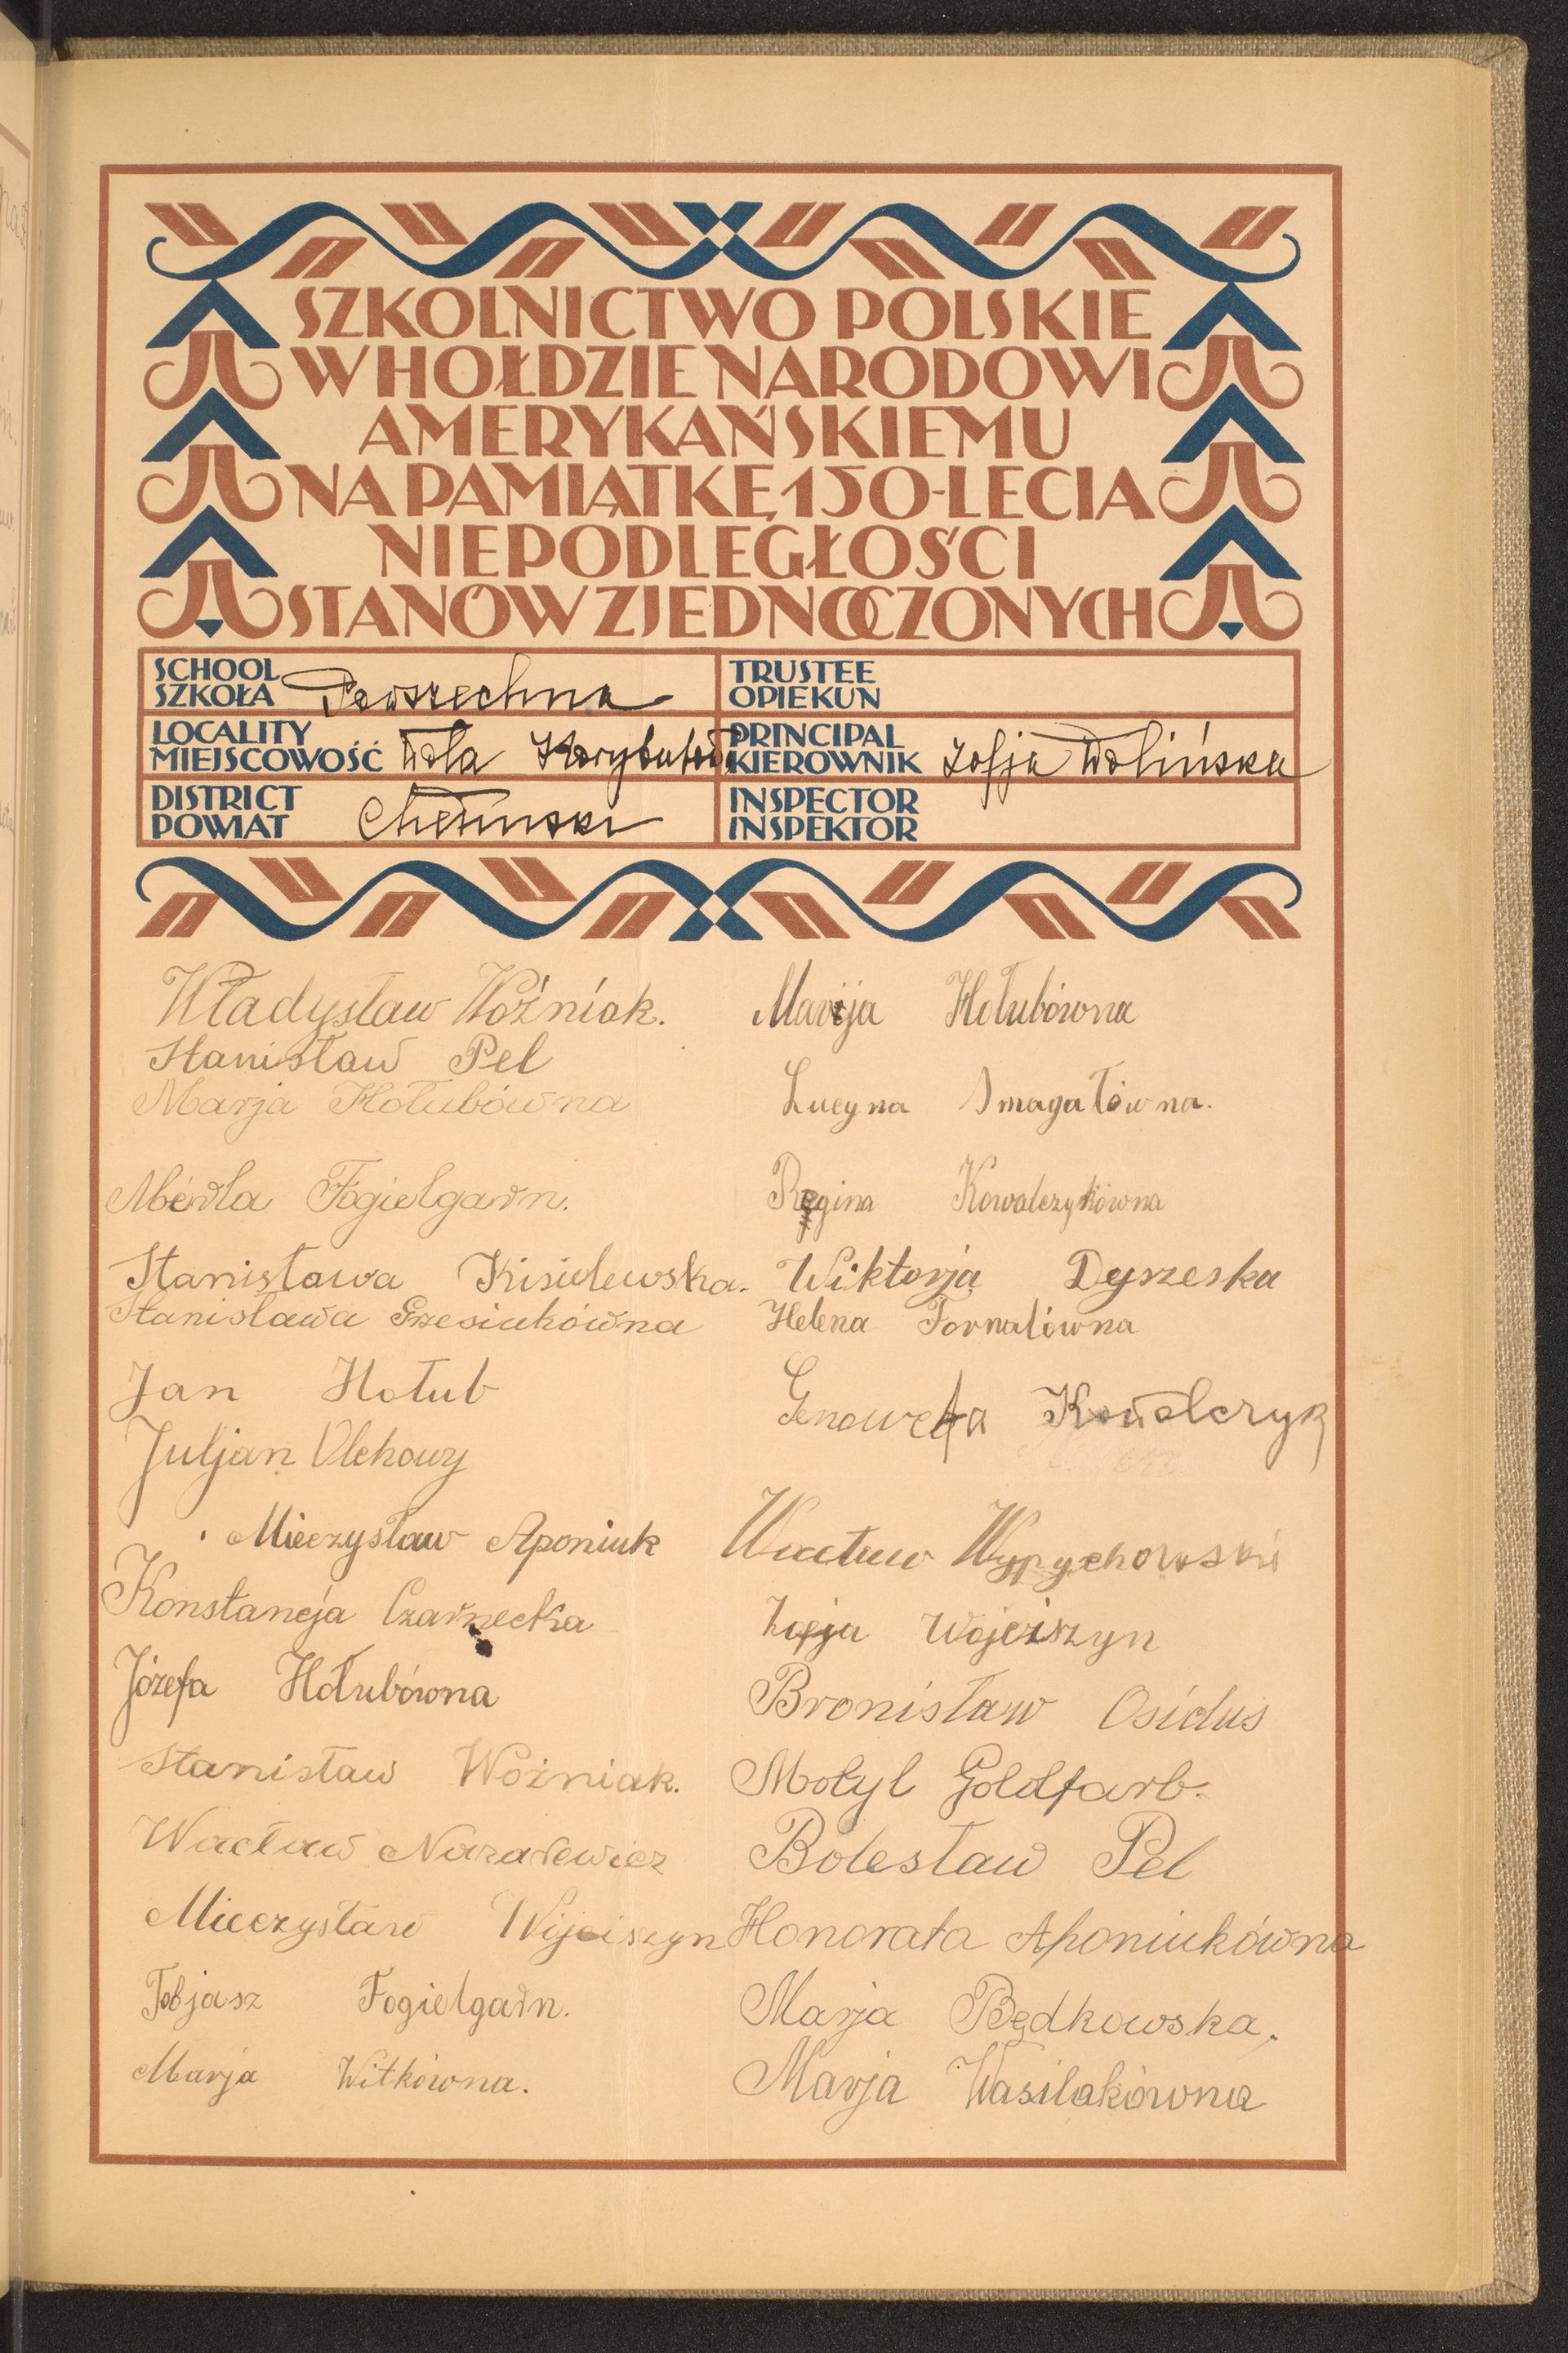 SZKOLNICTWO POLSKIE
W HOŁDZIE NARODOWI
AMERYKAŃSKIEMU
NA PAMIĄTKĘ 150-LECIA
NIEPODLEGŁOŚCI
STANÓW ZJEDNOCZONYCH
SCHOOL
SZKOŁA Powszechna
TRUSTEE
OPIEKUN
LOCALITY
MIEJSCOWOŚĆ Wola
PRINCIPAL
KIEROWNIK Zofja Wolińska
DISTRICT
POWIAT Chełmski
INSPECTOR
INSPEKTOR
Władysław Woźniak.
Stanisław Pel
Marja Hołubówna
Fogielgarn.
Stanisława Kisielewska.
Stanisława Grzesiukówna
Jan Hołub
Juljan Olchowy
Mieczysław Aponiuk
Konstancja Czarnecka
Józefa Hołubówna
Stanisław Woźniak.
Wacław Nazarewicz
Mieczysław Wijciszyn
Tobjasz Fogielgarn.
Marja Witkówna.
Marija Hołubówna
Lucyna Smagałówna.
Regina Kowalczykówna
Wiktorja Dyszeska
Helena Fornalówna
Genowefa Kowalczyk
Wacław Wypychowski
Zofja Wojciszyn
Bronisław Osidus
Motyl Goldfarb.
Bolesław Pel
Honorata Aponiukówna
Marja Będkowska.
Marja Wasilakówna